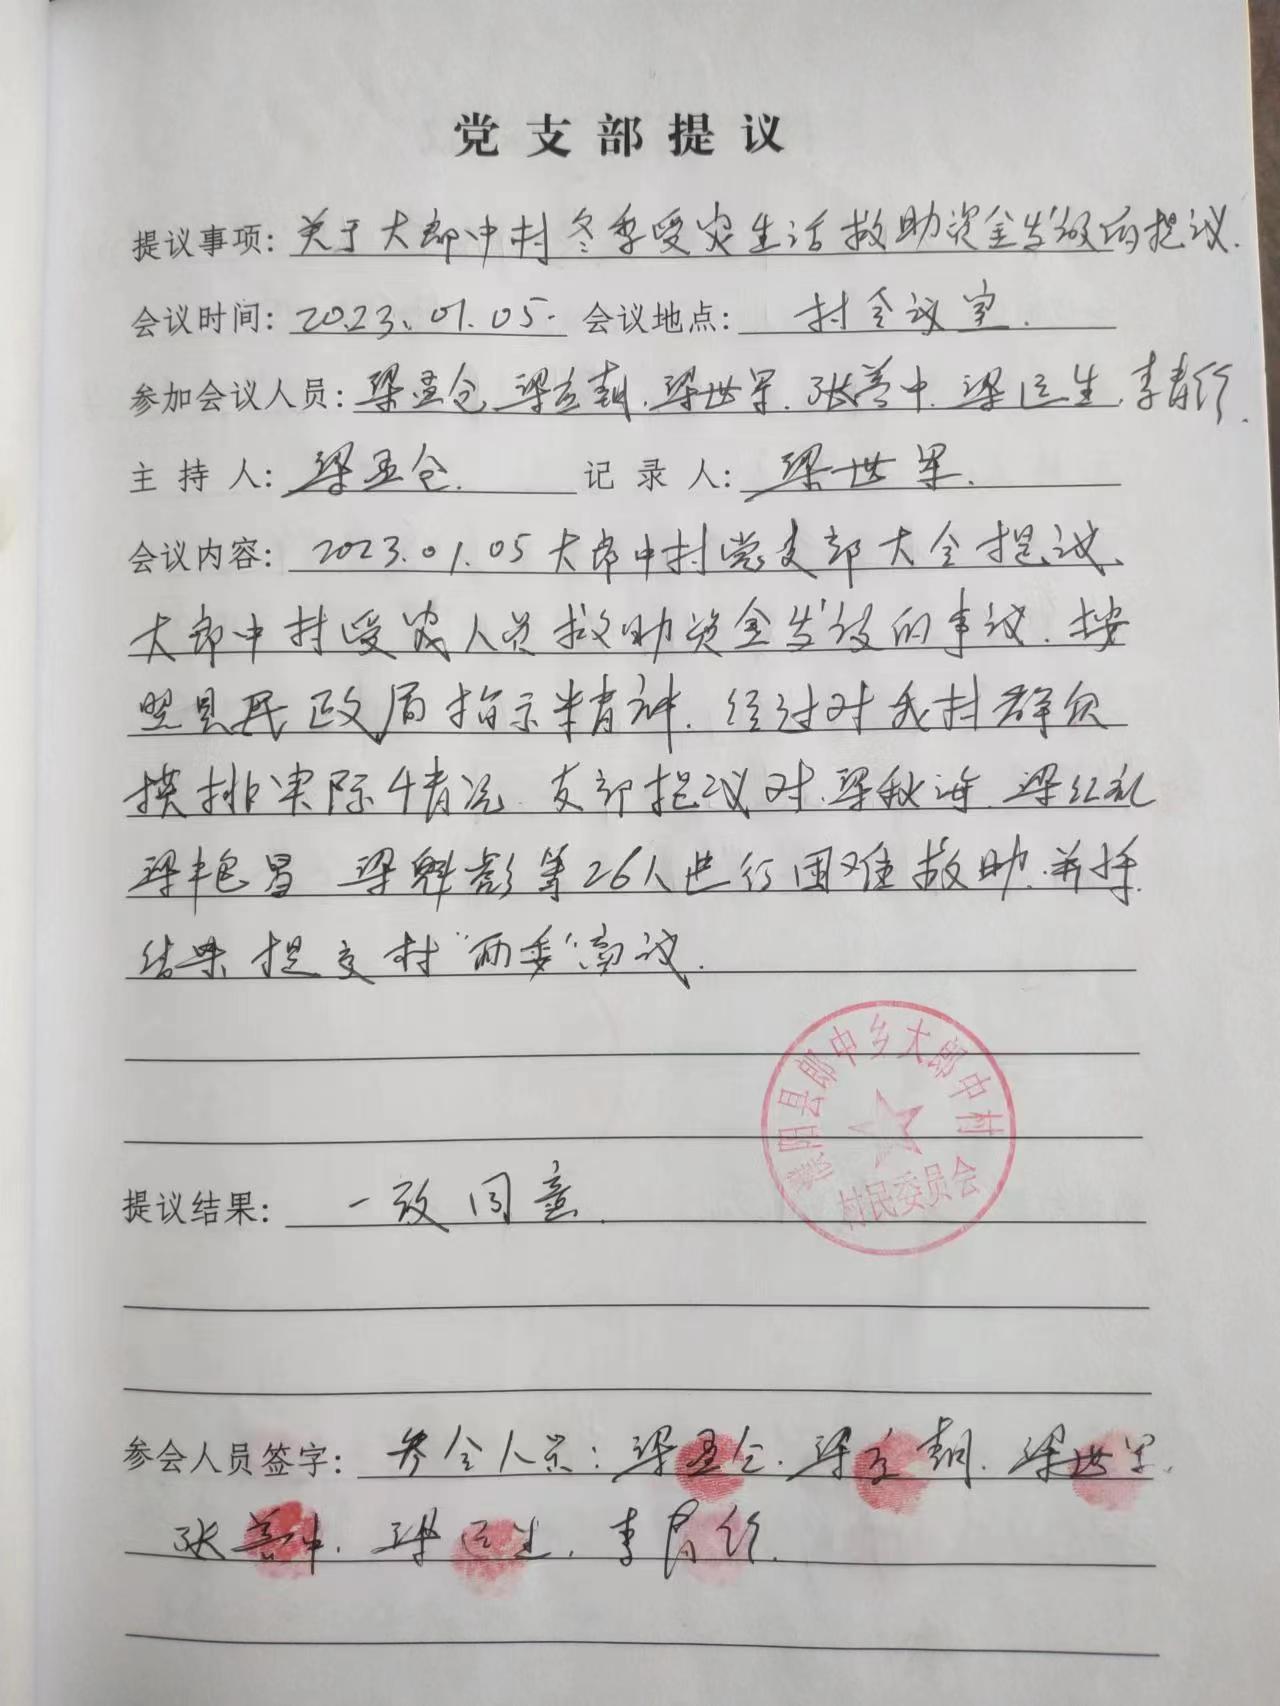 党支部提议
提议事项：关于大郎中村冬季受灾生活救助资金发放的提议.
会议时间：2023.01.05. 会议地点：村会议室.
参加会议人员：梁孟仓 梁立朝.梁世军.张善中.梁运生.李春行.
主持人：梁孟仓. 记录人：梁世军.
会议内容：2023.01.05大郎中村党支部大会提议、
大郎中村受灾人员救助资金发放的事议.按
照县民政局指示精神.经过对我村群众
摸排实际情况.支部提议对.梁秋海.梁红礼
梁艳昌 梁魁彪等26人进行困难救助.并将
结果提交村“两委”商议.
提议结果：一致同意.
参会人员签字：参会人员：梁孟仓.梁立朝.梁世军.
张善中.梁运生.李春行.
濮阳县郎中乡大郎中村
村民委员会